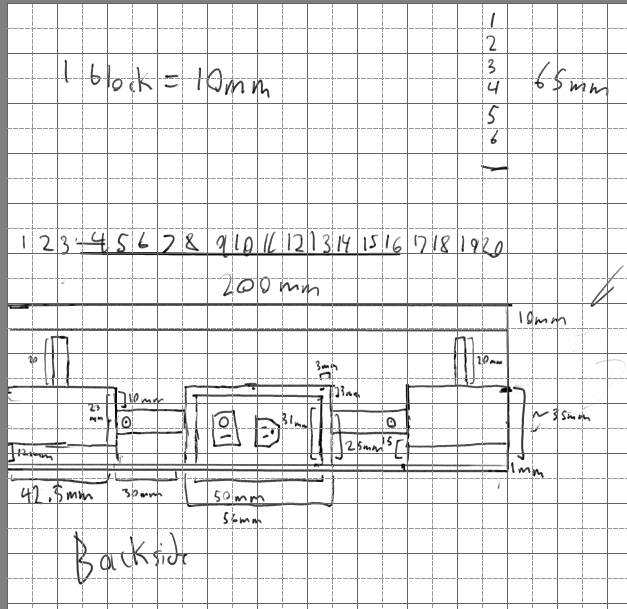 1 block = 10mm
1
2
3
4
5
6
65mm
1 2 3 4 5 6 7 8 9 10 11 12 13 14 15 16 17 18 19 20
200mm
10mm
20
20mm
3mm
10mm
3mm
23
mm
31mm
~35mm
25mm
15
12mm
1mm
42.5mm
30mm
50mm
56mm
Backside